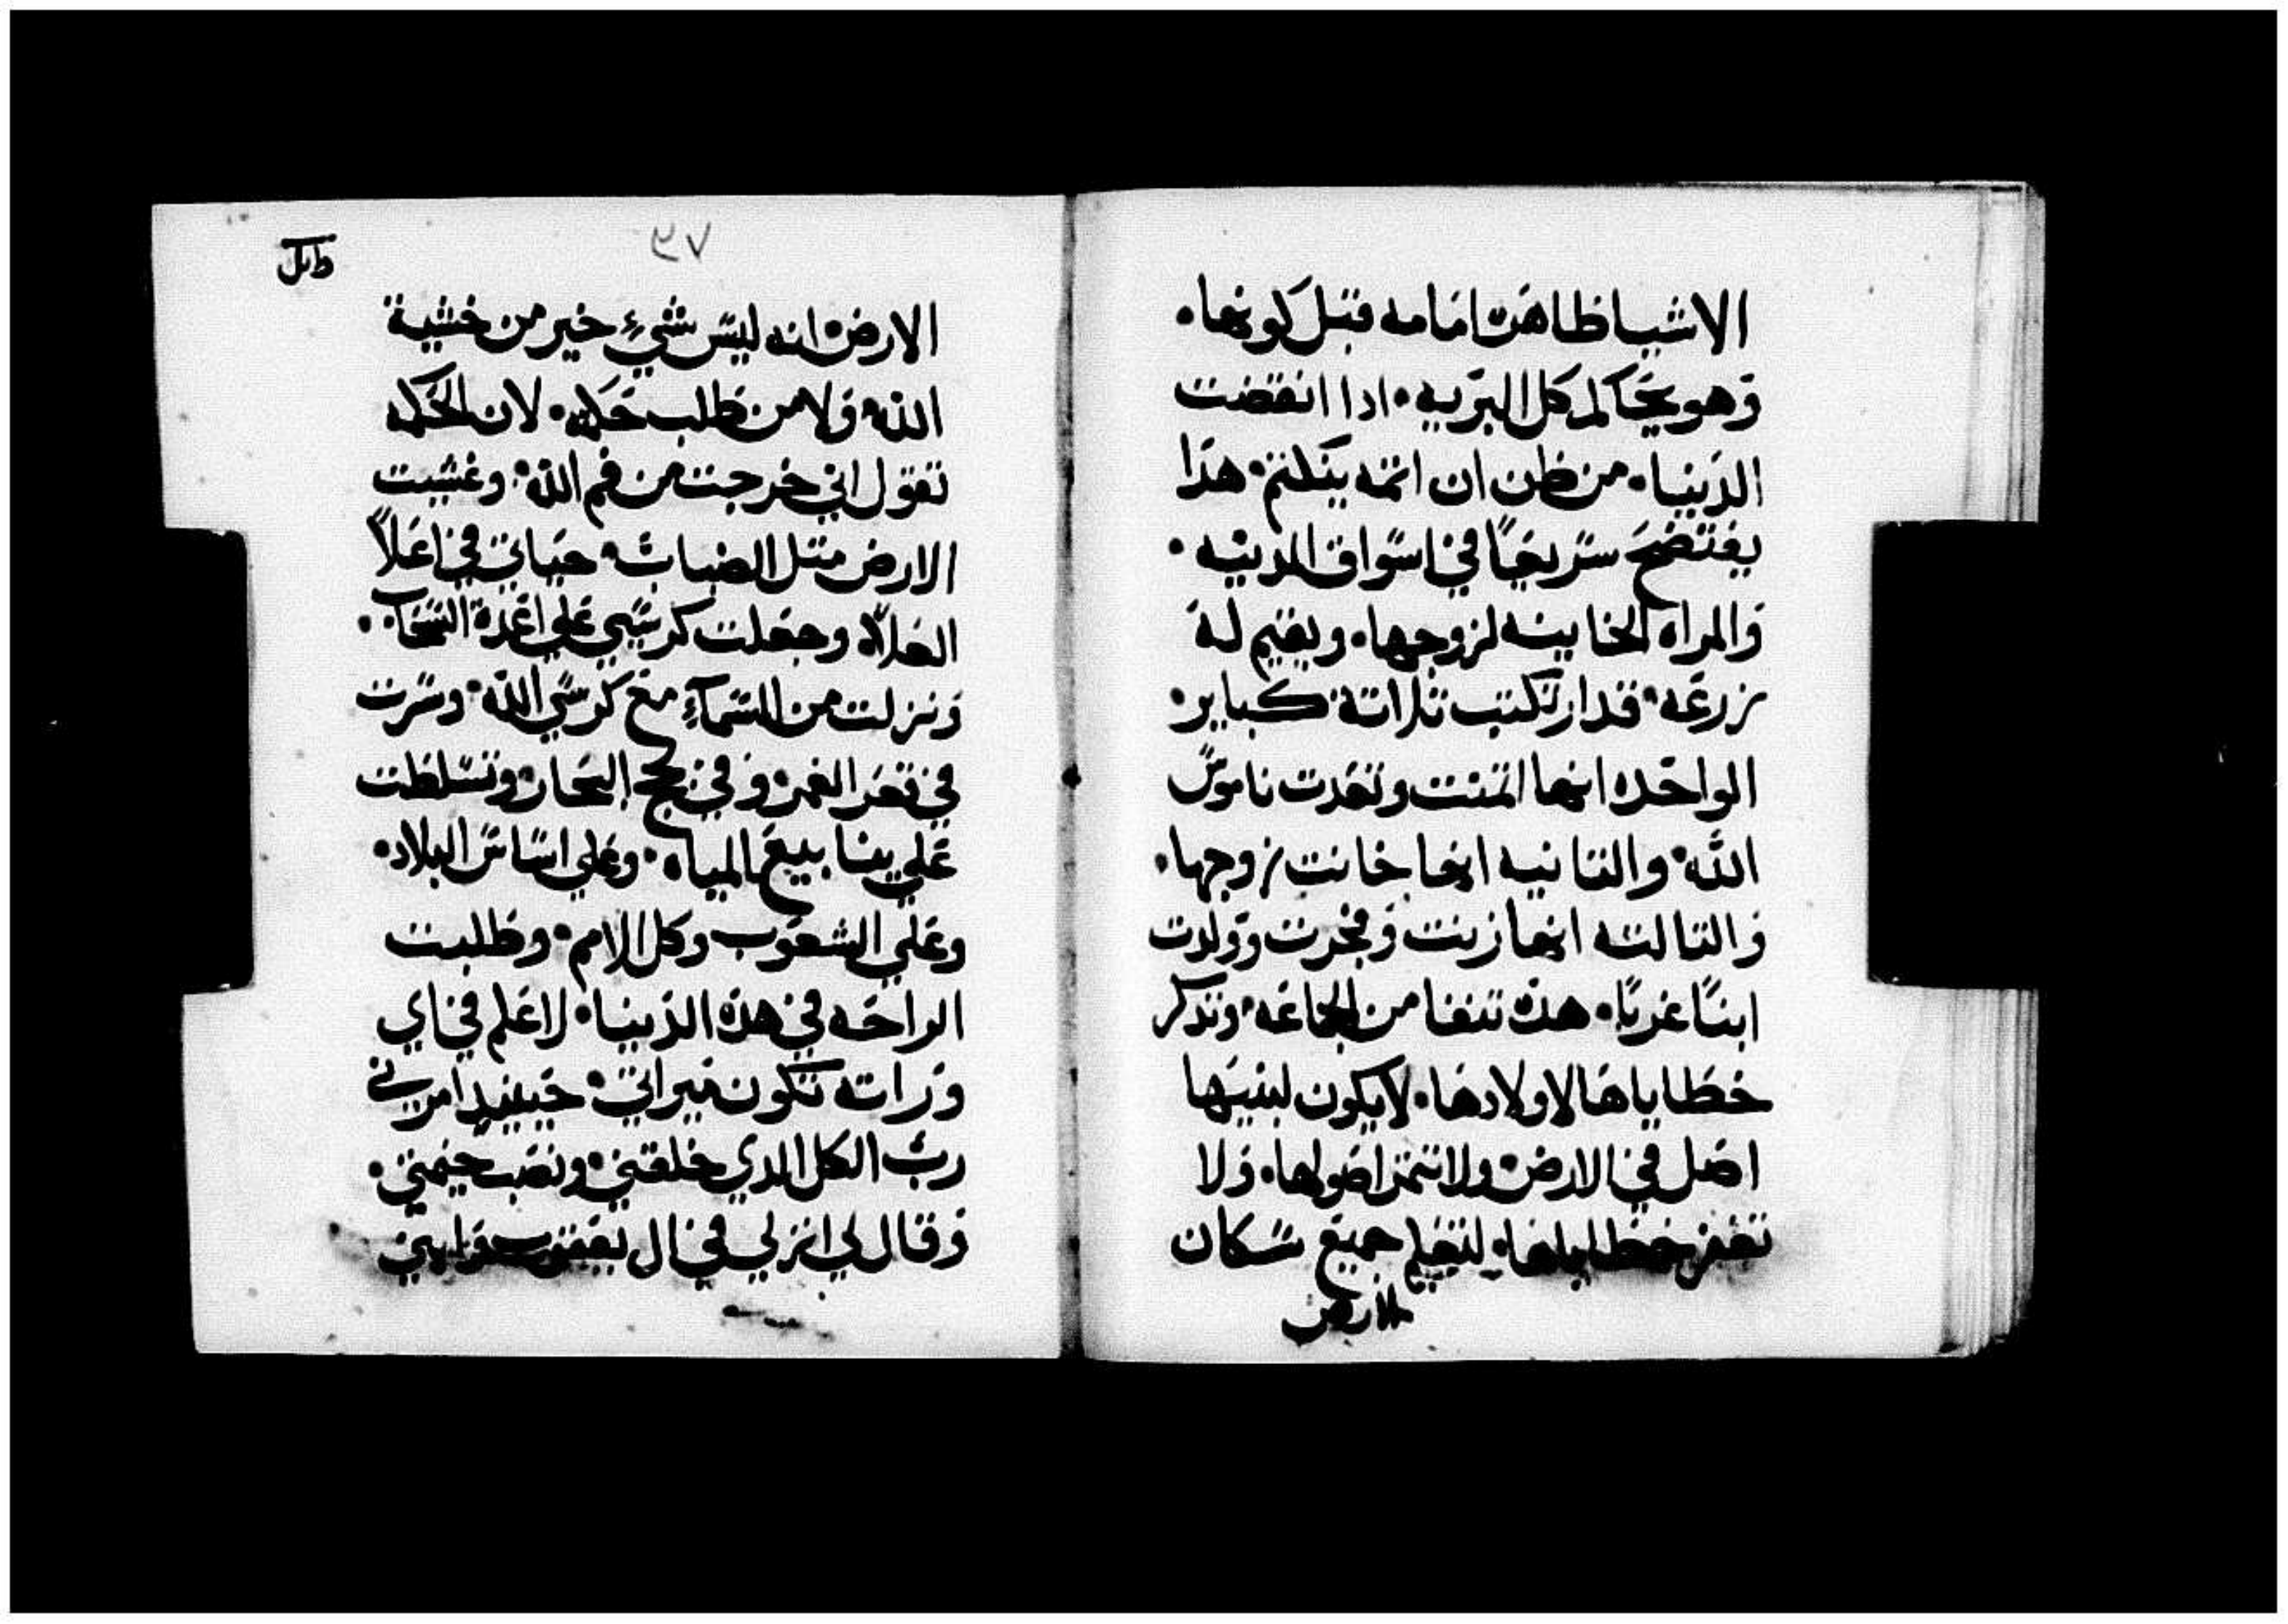 الاشيا ظاهره امامه قبل كونها.
وهو يحاكم كل البريه. ادا انقضت
الدنيا. من ظن ان اثمه ينكتم. هدا
يفتضح سريعًا في اسواق المدينه.
والمراه الخاينه لزوجها. ويقيم له
زرعه. قد ارتكبت تلاتة كباير.
الواحده انها اتمت وتعدت ناموس
الله. والتانيه انها خانت زوجها.
والتالته انها زنت وفجرت وولدت
ابنًا غريبًا. هده تنفا من الجماعه. وتدكر
خطاياها لاولادها. لا يكون لبنيها
اصل في الارض. ولا تتمر اصولها. ولا
تغفر خطاياها. لتعلم جميع سكان
الارض
طل
٣٧
الارض. انه ليس شيء خير من خشية
الله. ولا من طلب حكمه. لان الحكمه
تقول اني خرجت من فم الله. وغشيت
الارض متل الضباب. حياتي في اعلاً
العلاء. وجعلت كرسيي علي اعمدة السحاب.
ونزلت من السماء مع كرسي الله. وسرت
في قعر الغمر. وفي لجج البحار. وتسلطت
علي ينابيع المياه. وعلي اساس البلاد.
وعلي الشعوب وكل الامم. وطلبت
الراحه في هده الدنيا. لاعلم في اي
وراته تكون ميراتي. حينيد امرني
رب الكل الدي خلقني. ونصب خيمتي.
وقال لي انزلي في ال يعقوب